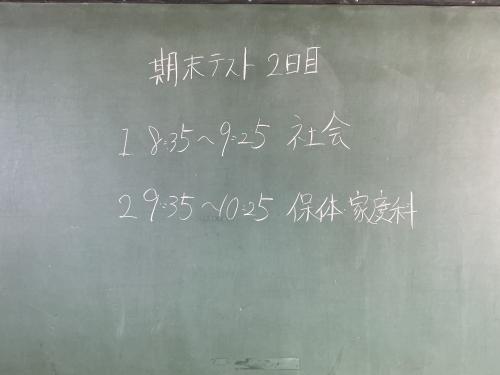 期末テスト 2日目
1 8:35〜9:25 社会
2 9:35〜10:25 保体・家庭科